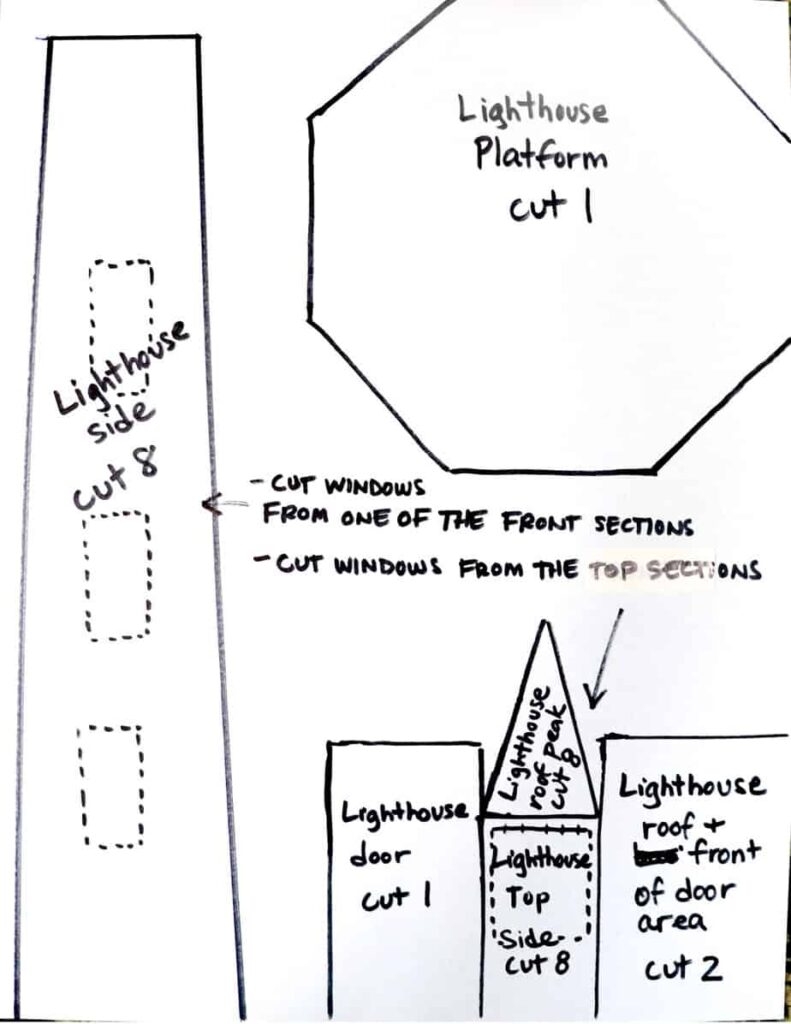 Lighthouse
Platform
cut 1
Lighthouse
side
cut 8
- CUT WINDOWS
FROM ONE OF THE FRONT SECTIONS
- CUT WINDOWS FROM THE TOP SECTIONS
Lighthouse
roof peak
cut 8
Lighthouse
door
cut 1
Lighthouse
Top
Side
cut 8
Lighthouse
roof +
front
of door
area
cut 2